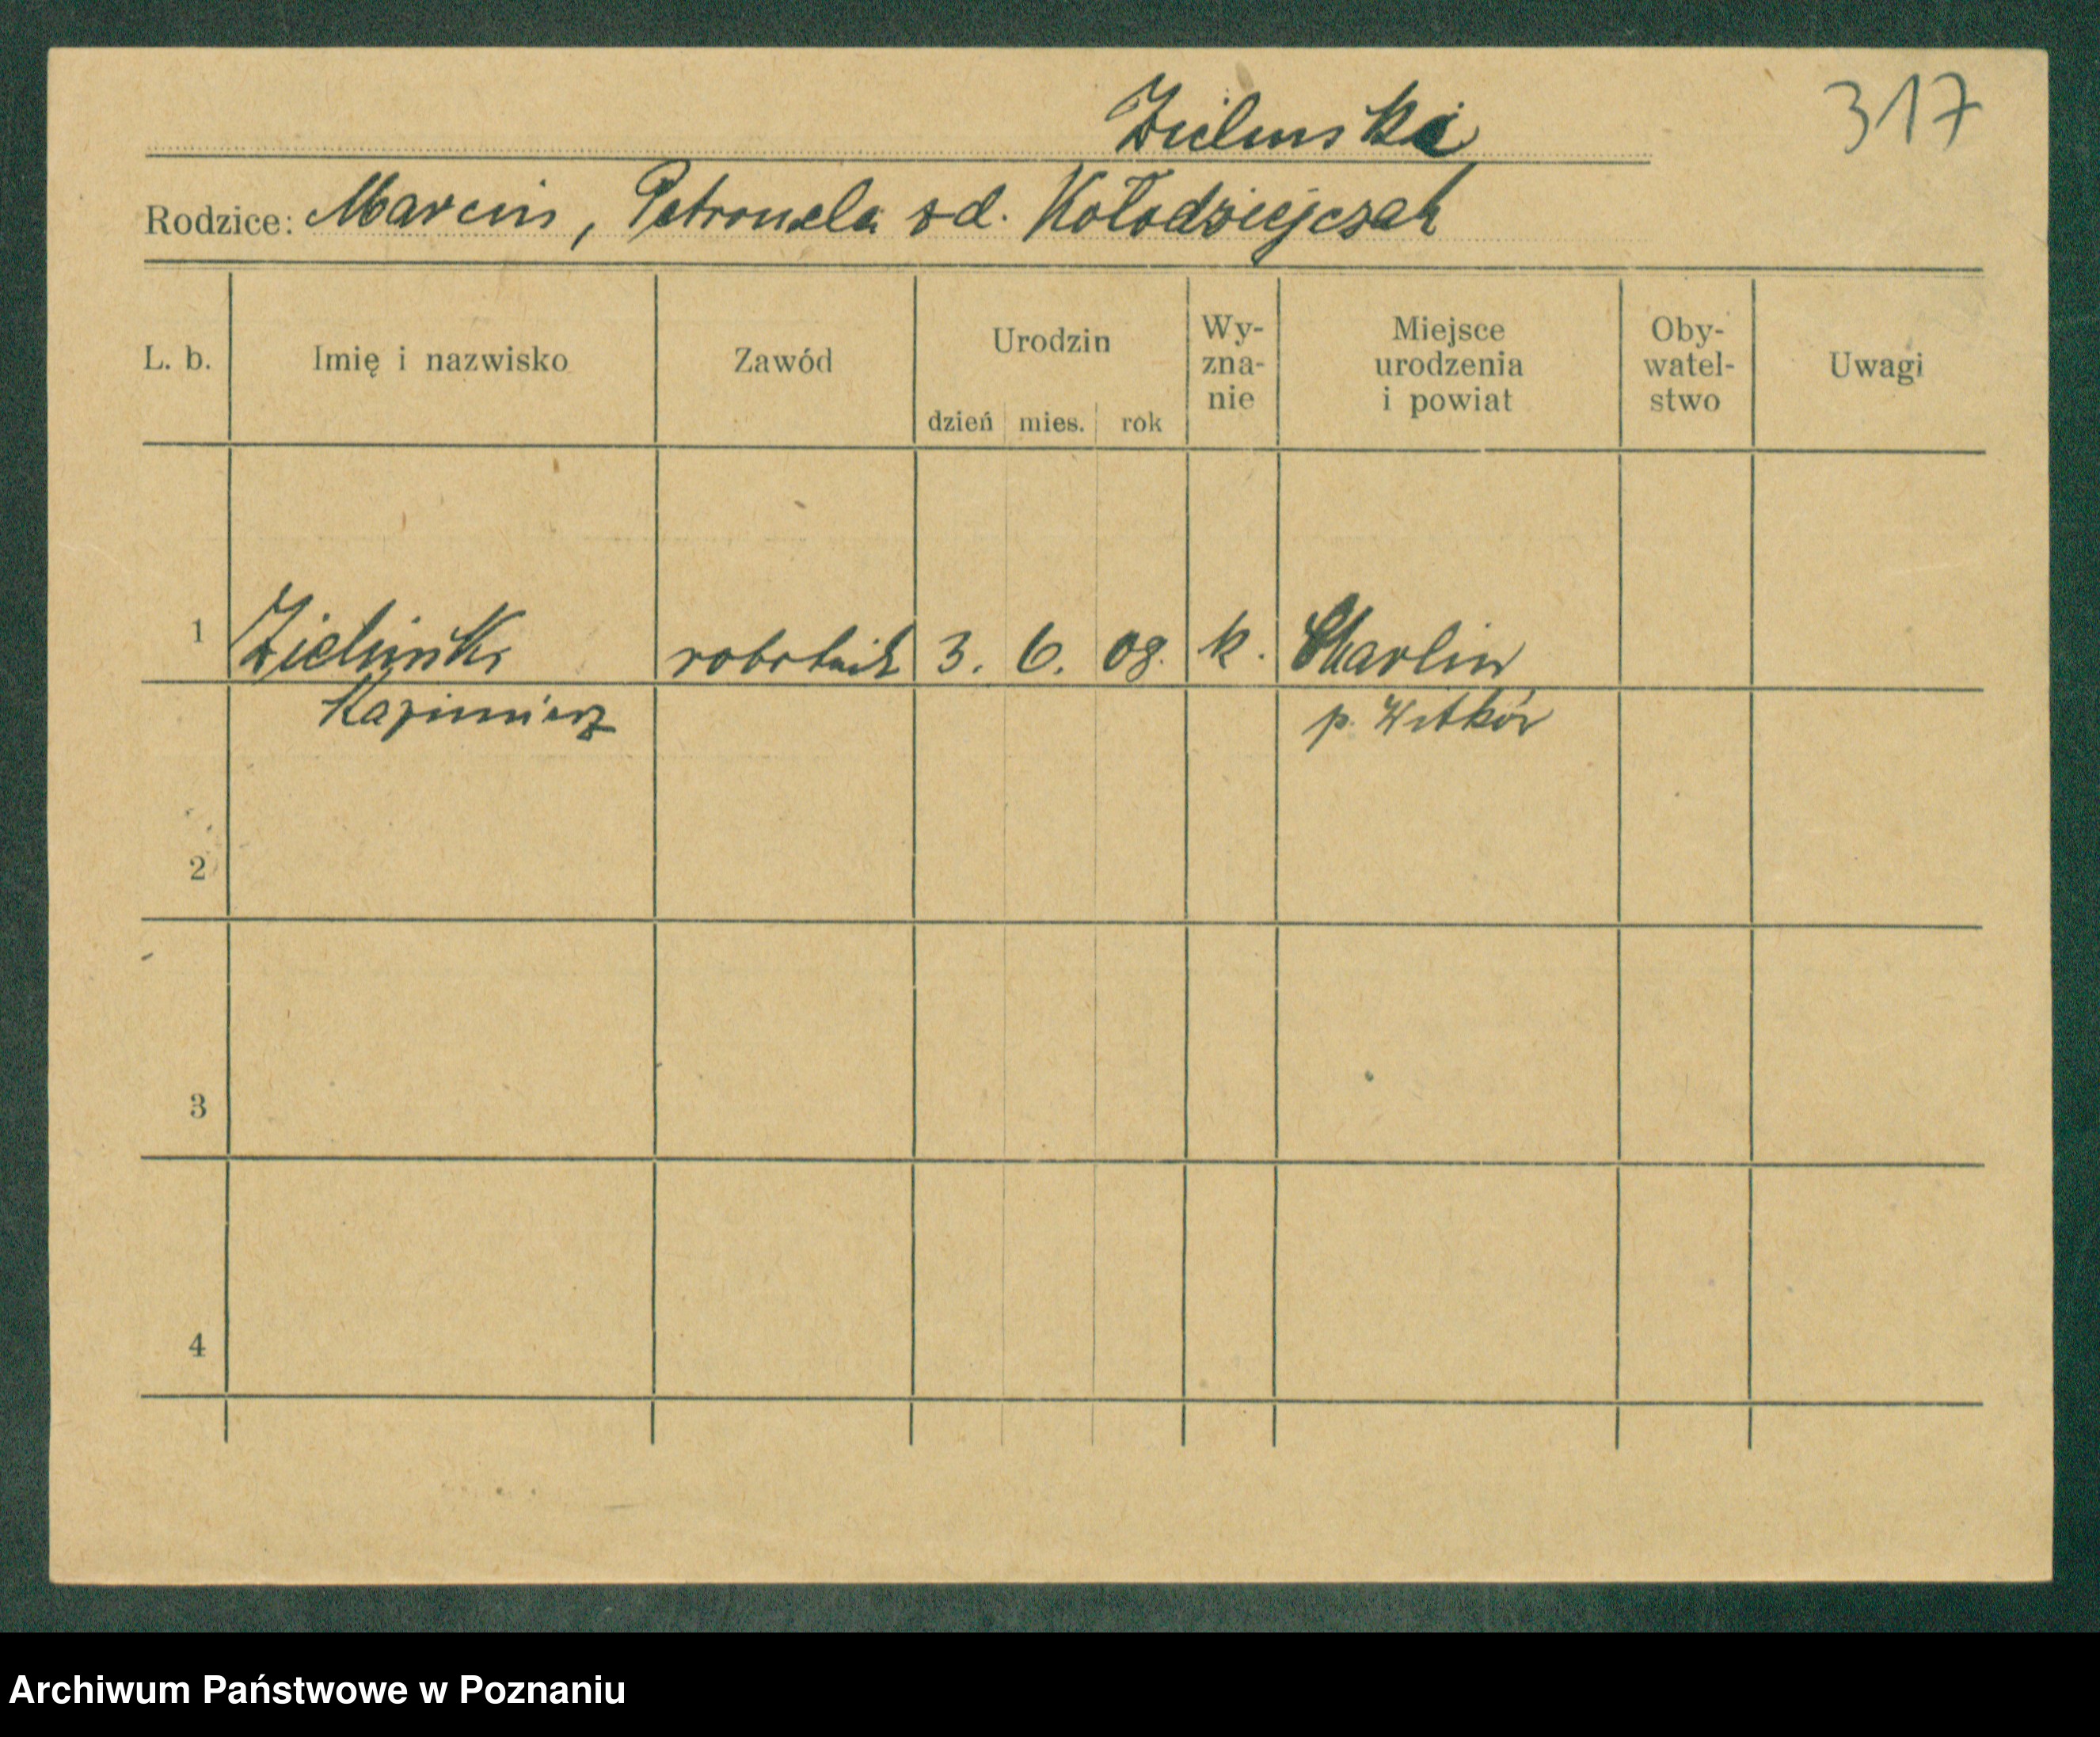 317
Zielinski
Rodzice: Marcin, Petronela od. Kołodziejczak
L. b. Imię i nazwisko Zawód Urodzin dzień mies. rok Wy-zna-nie Miejsce urodzenia i powiat Oby-watel-stwo Uwagi
1 Zieliński robotnik 3. 6. 08. k. Skarlin
Kazimierz p. Witków
2
3
4
Archiwum Państwowe w Poznaniu